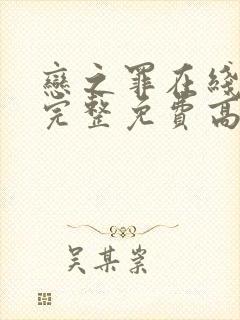 戀之罪在綫
完整免費高
吴某岽